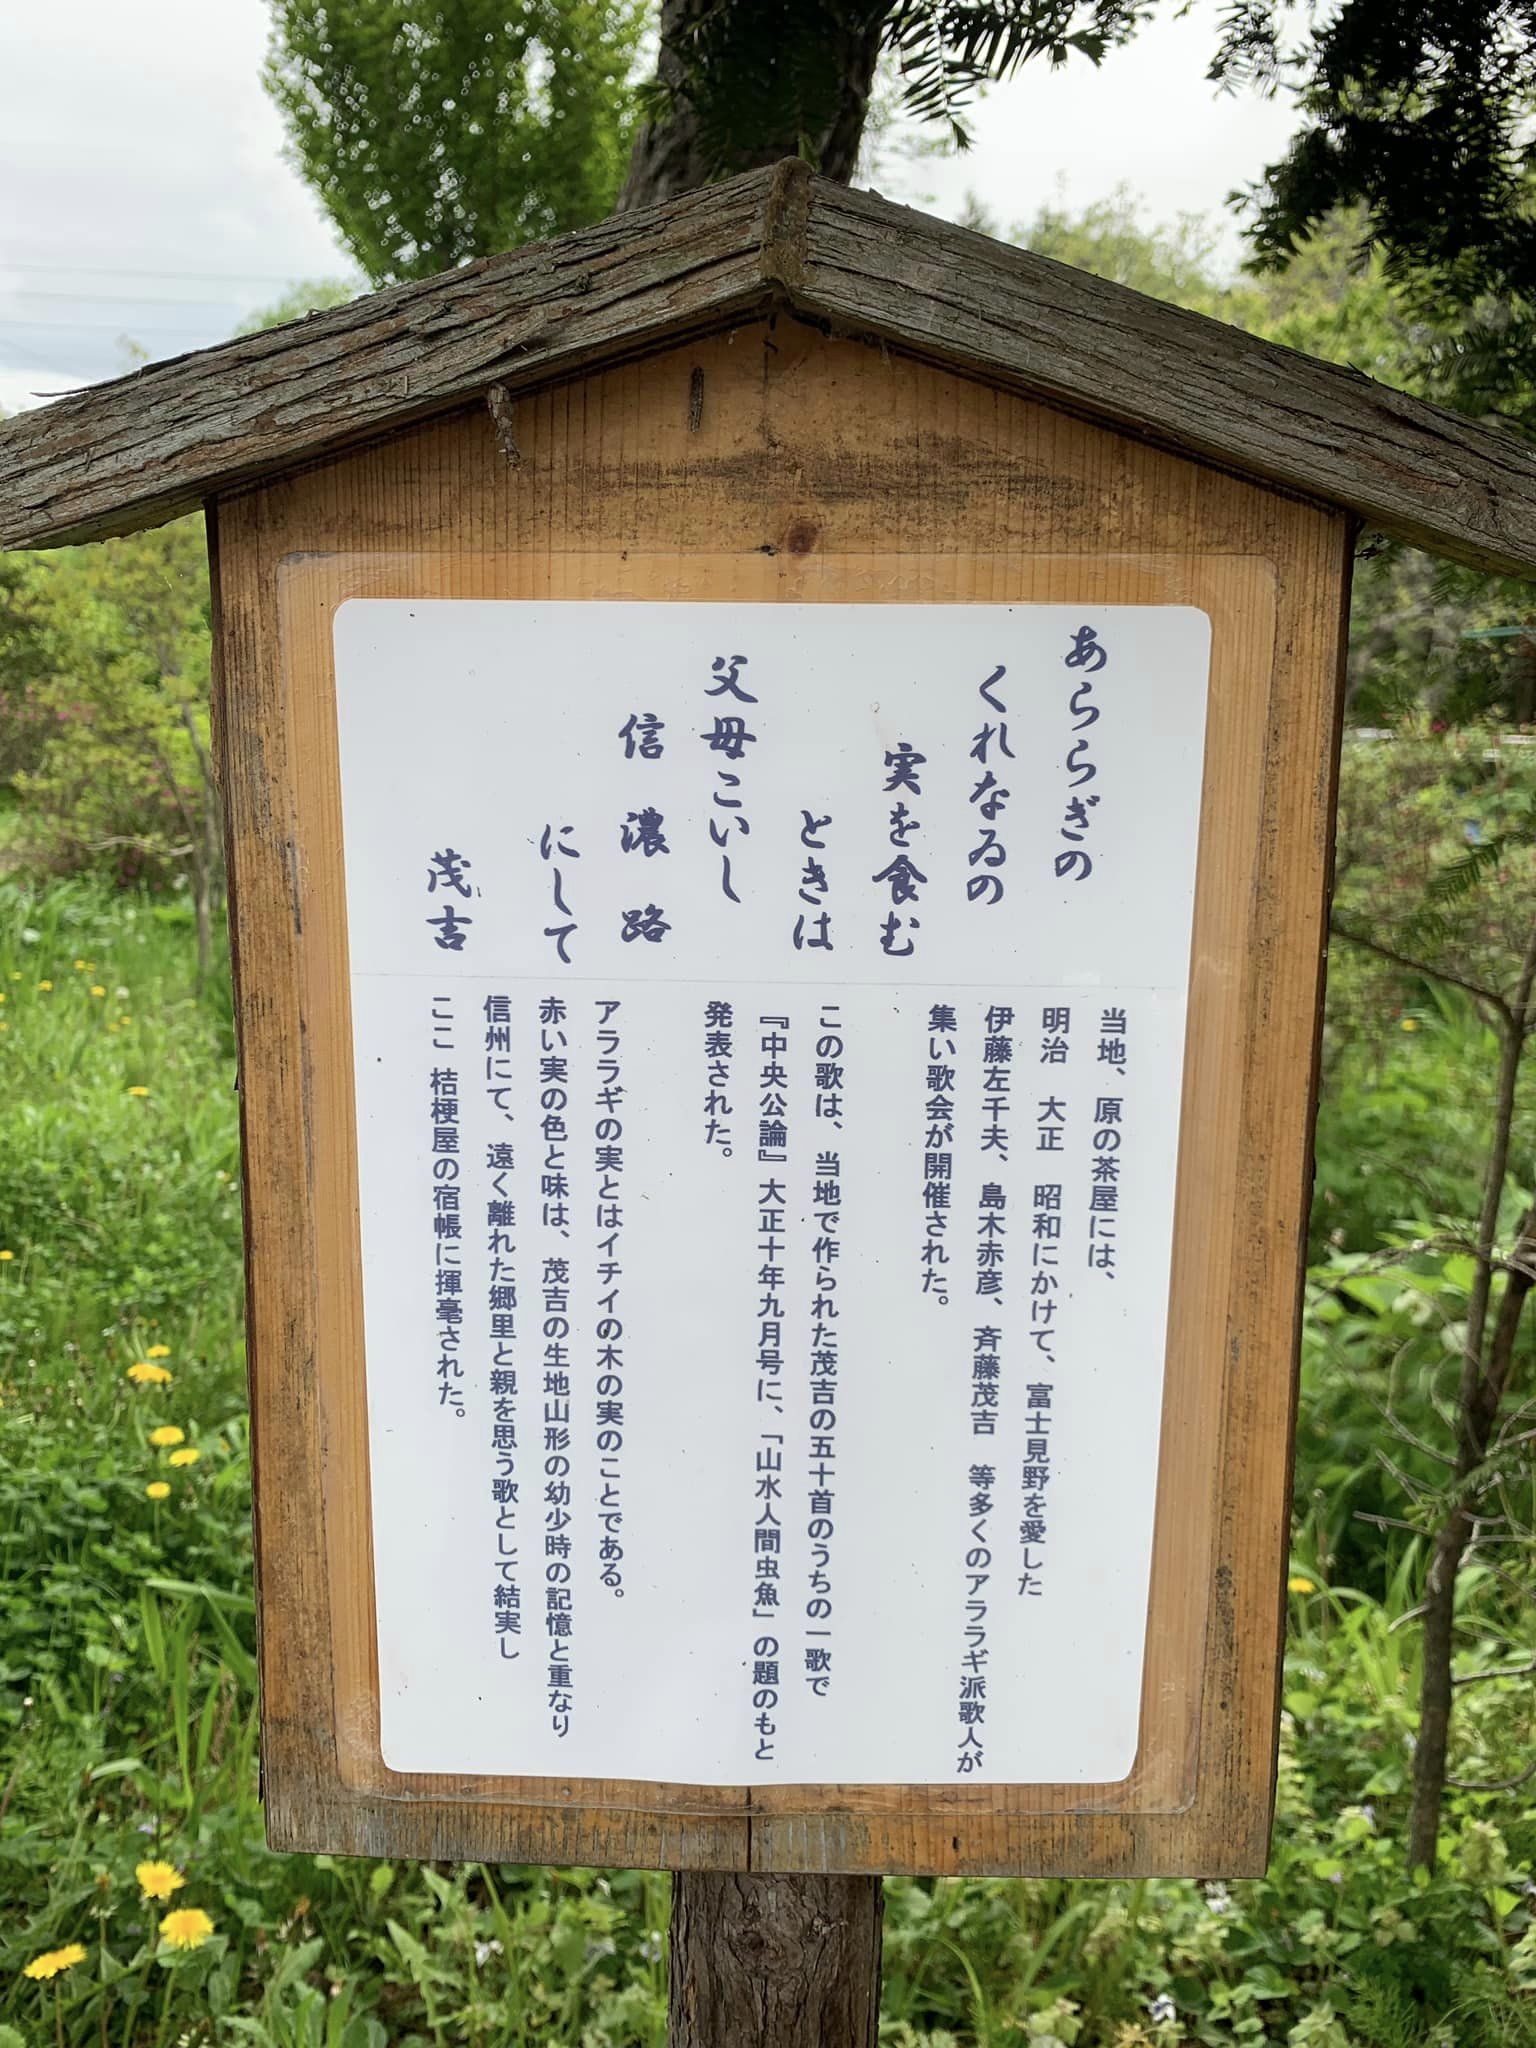 あららぎの
くれなゐの
実を食む
ときは
父母こいし
信濃路
にして
茂吉
当地、原の茶屋には、
明治　大正　昭和にかけて、富士見野を愛した
伊藤左千夫、島木赤彦、斉藤茂吉　等多くのアララギ派歌人が
集い歌会が開催された。
この歌は、当地で作られた茂吉の五十首のうちの一歌で
『中央公論』大正十年九月号に、「山水人間虫魚」の題のもと
発表された。
アララギの実とはイチイの木の実のことである。
赤い実の色と味は、茂吉の生地山形の幼少時の記憶と重なり
信州にて、遠く離れた郷里と親を思う歌として結実し
ここ　桔梗屋の宿帳に揮毫された。